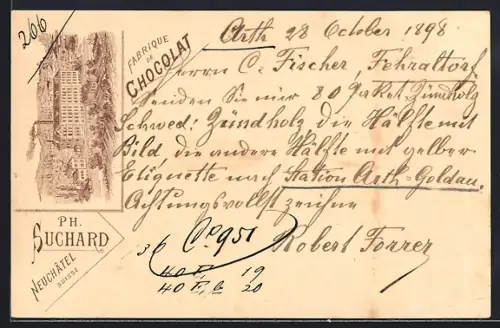 266
FABRIQUE
DE
CHOCOLAT
PH.
SUCHARD
NEUCHÂTEL
SUISSE
Arth 28 October 1898
Herrn C. Fischer, Fehraltorf
Senden Sie mir 80 Paket Zündholz
Schwed: Zündholz die Hälfte mit
Bild, die andere Hälfte mit gelber
Etiquette nach Station Arth-Goldau.
Achtungsvollst zeichne
Robert Forrer
36
No 951
40 19
40 20